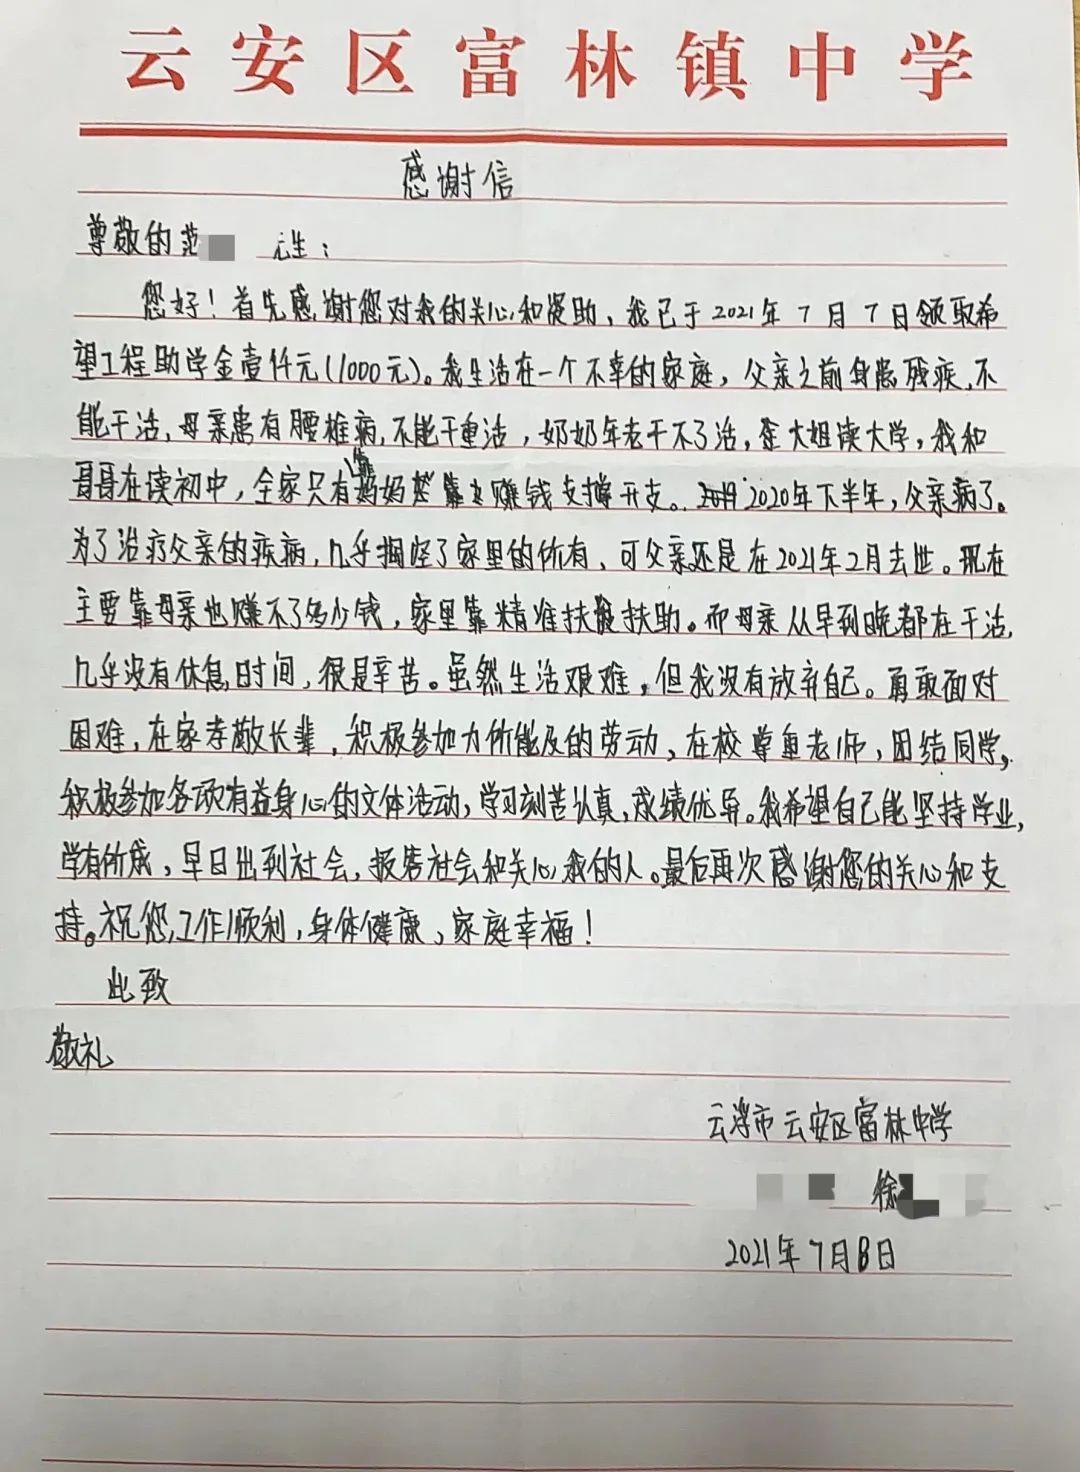 云安区富林镇中学
感谢信
尊敬的范 先生：
您好！首先感谢您对我的关心和资助，我已于2021年7月7日领取希
望工程助学金壹仟元(1000元)。我生活在一个不幸的家庭，父亲之前身患残疾，不
能干活，母亲患有腰椎病，不能干重活，奶奶年老干不了活，大姐读大学，我和
哥哥在读初中，全家只有靠妈妈赚钱支撑开支。2020年下半年，父亲病了。
为了治疗父亲的疾病，几乎掏空了家里的所有，可父亲还是在2021年2月去世。现在
主要靠母亲也赚不了多少钱，家里靠精准扶扶助。而母亲从早到晚都在干活，
几乎没有休息日时间，很是辛苦。虽然生活艰难，但我没有放弃自己。勇敢面对
困难，在家孝敬长辈，积极参加力所能及的劳动，在校尊重老师，团结同学，
积极参加各项有益身心的文体活动，学习刻苦认真，成绩优异。我希望自己能坚持学业，
学有所成，早日出到社会，报答社会和关心我的人。最后再次感谢您的关心和支
持。祝您工作顺利，身体健康、家庭幸福！
此致
敬礼
云浮市云安区富林中学
徐
2021年7月8日